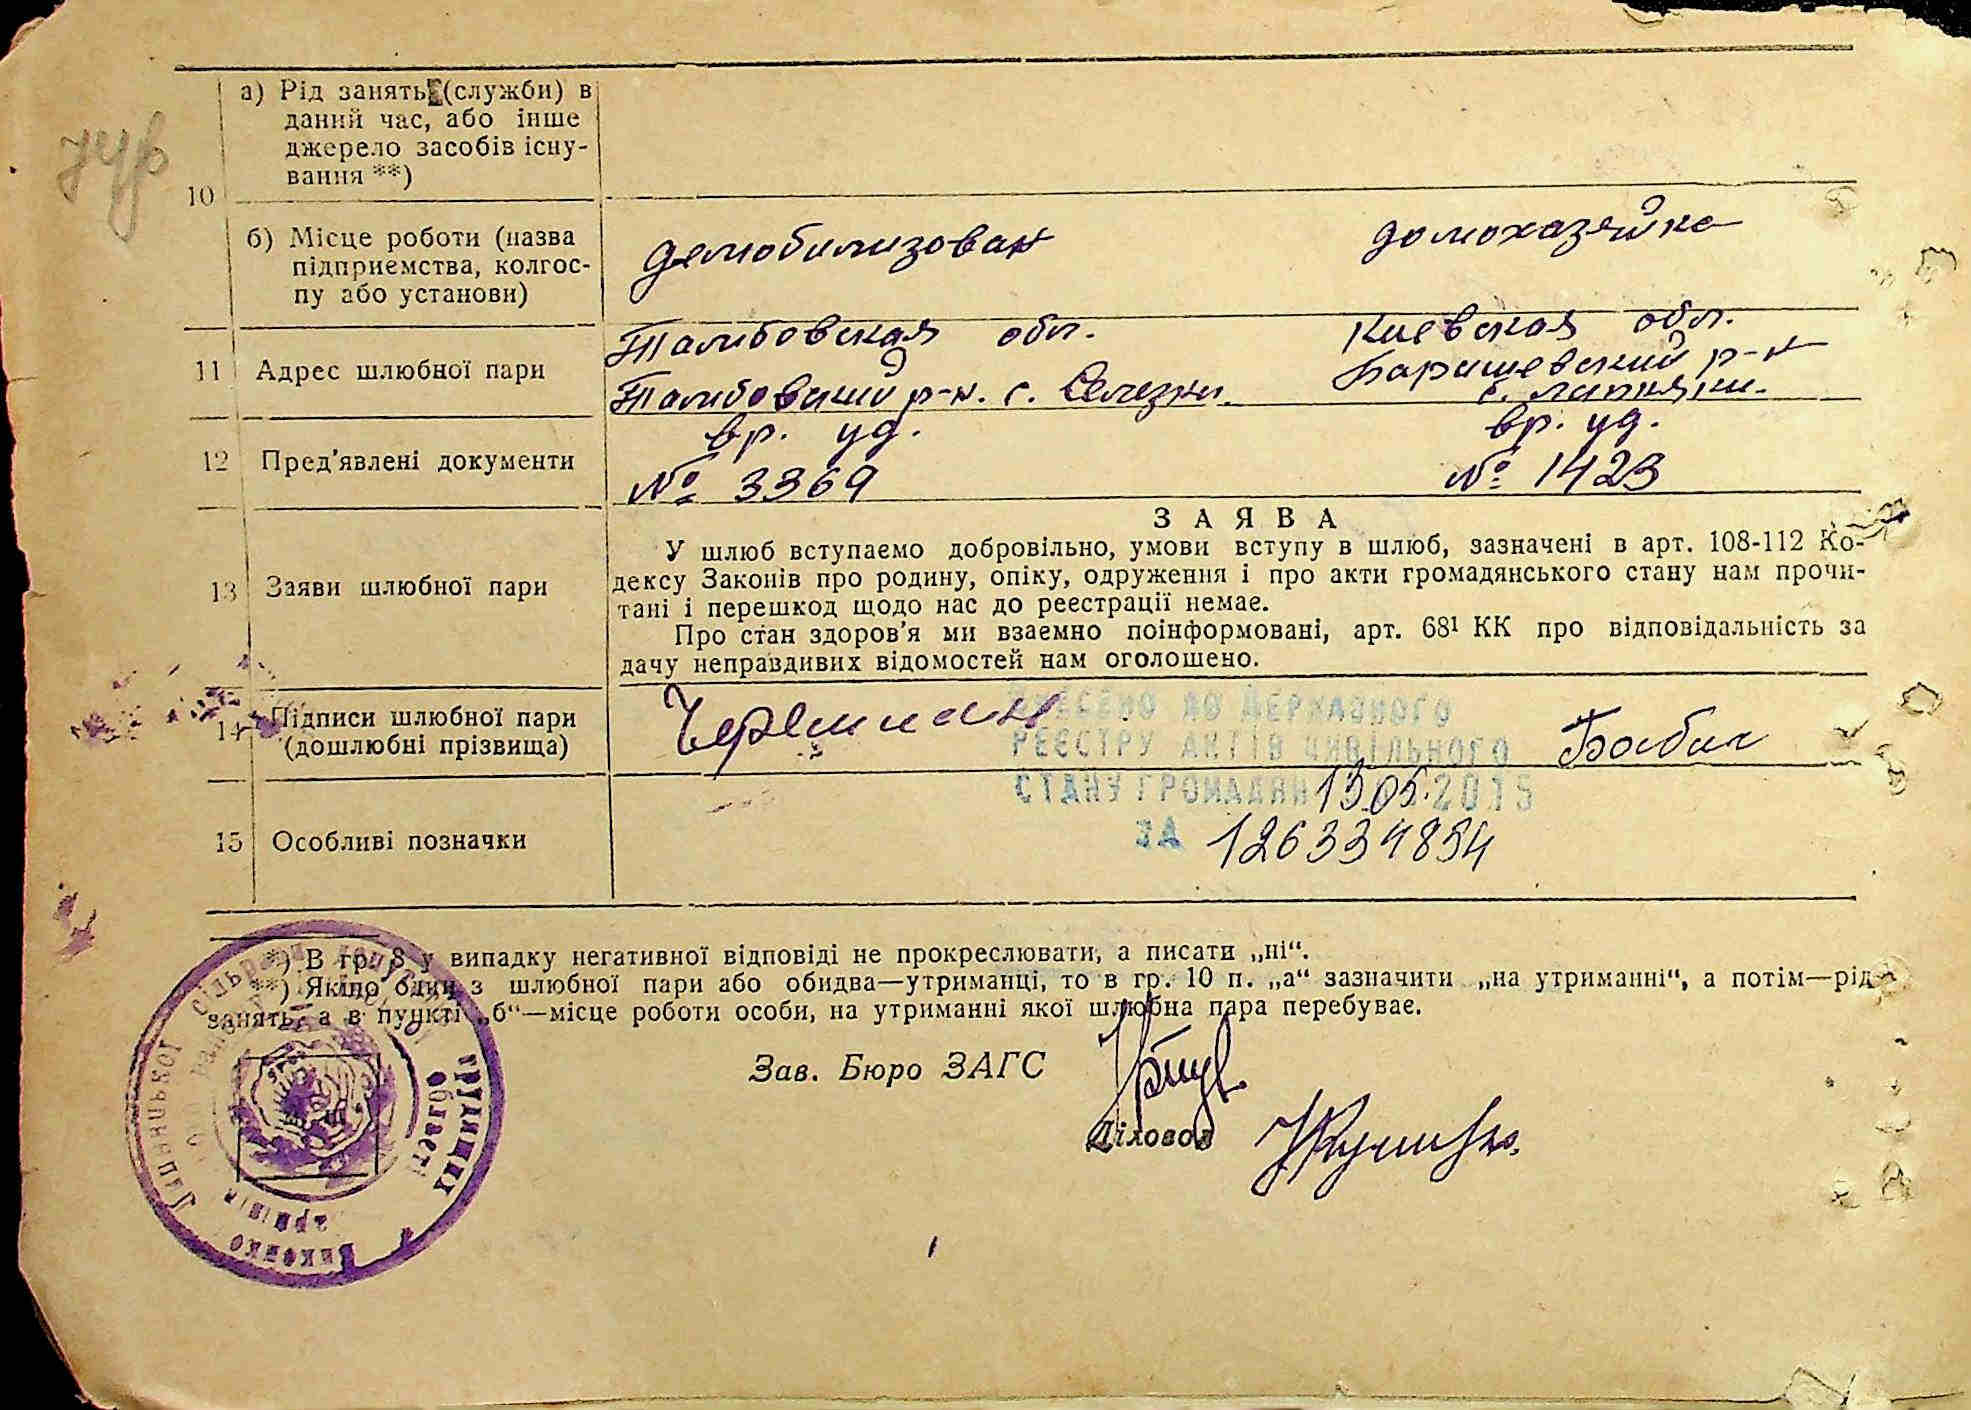 а) Рід занять (служби) в
даний час, або інше
джерело засобів існу-
вання **)
10
б) Місце роботи (назва
підприємства, колгос-
пу або установи)
демобилизован
домохазяйка
11
Адрес шлюбної пари
Тамбовская обл.
Тамбовский р-н. с. Селезни.
Киевская обл.
Барышевский р-н
12
Пред'явлені документи
вр. уд.
№ 3369
вр. уд.
№ 1423
13
Заяви шлюбної пари
ЗАЯВА
У шлюб вступаємо добровільно, умови вступу в шлюб, зазначені в арт. 108-112 Ко-
дексу Законів про родину, опіку, одруження і про акти громадянського стану нам прочи-
тані і перешкод щодо нас до реєстрації немає.
Про стан здоров'я ми взаємно поінформовані, арт. 68¹ КК про відповідальність за
дачу неправдивих відомостей нам оголошено.
14
Підписи шлюбної пари
(дошлюбні прізвища)
Бабич
ВНЕСЕНО ДО ДЕРЖАВНОГО
РЕЄСТРУ АКТІВ ЦИВІЛЬНОГО
СТАНУ ГРОМАДЯН 13.05.2015
ЗА 126334854
15
Особливі позначки
*) В гр. 8 у випадку негативної відповіді не прокреслювати, а писати „ні“.
**) Якщо один з шлюбної пари або обидва—утриманці, то в гр. 10 п. „а“ зазначити „на утриманні“, а потім—рід
занять, а в пункті „б“—місце роботи особи, на утриманні якої шлюбна пара перебуває.
Зав. Бюро ЗАГС
Діловод